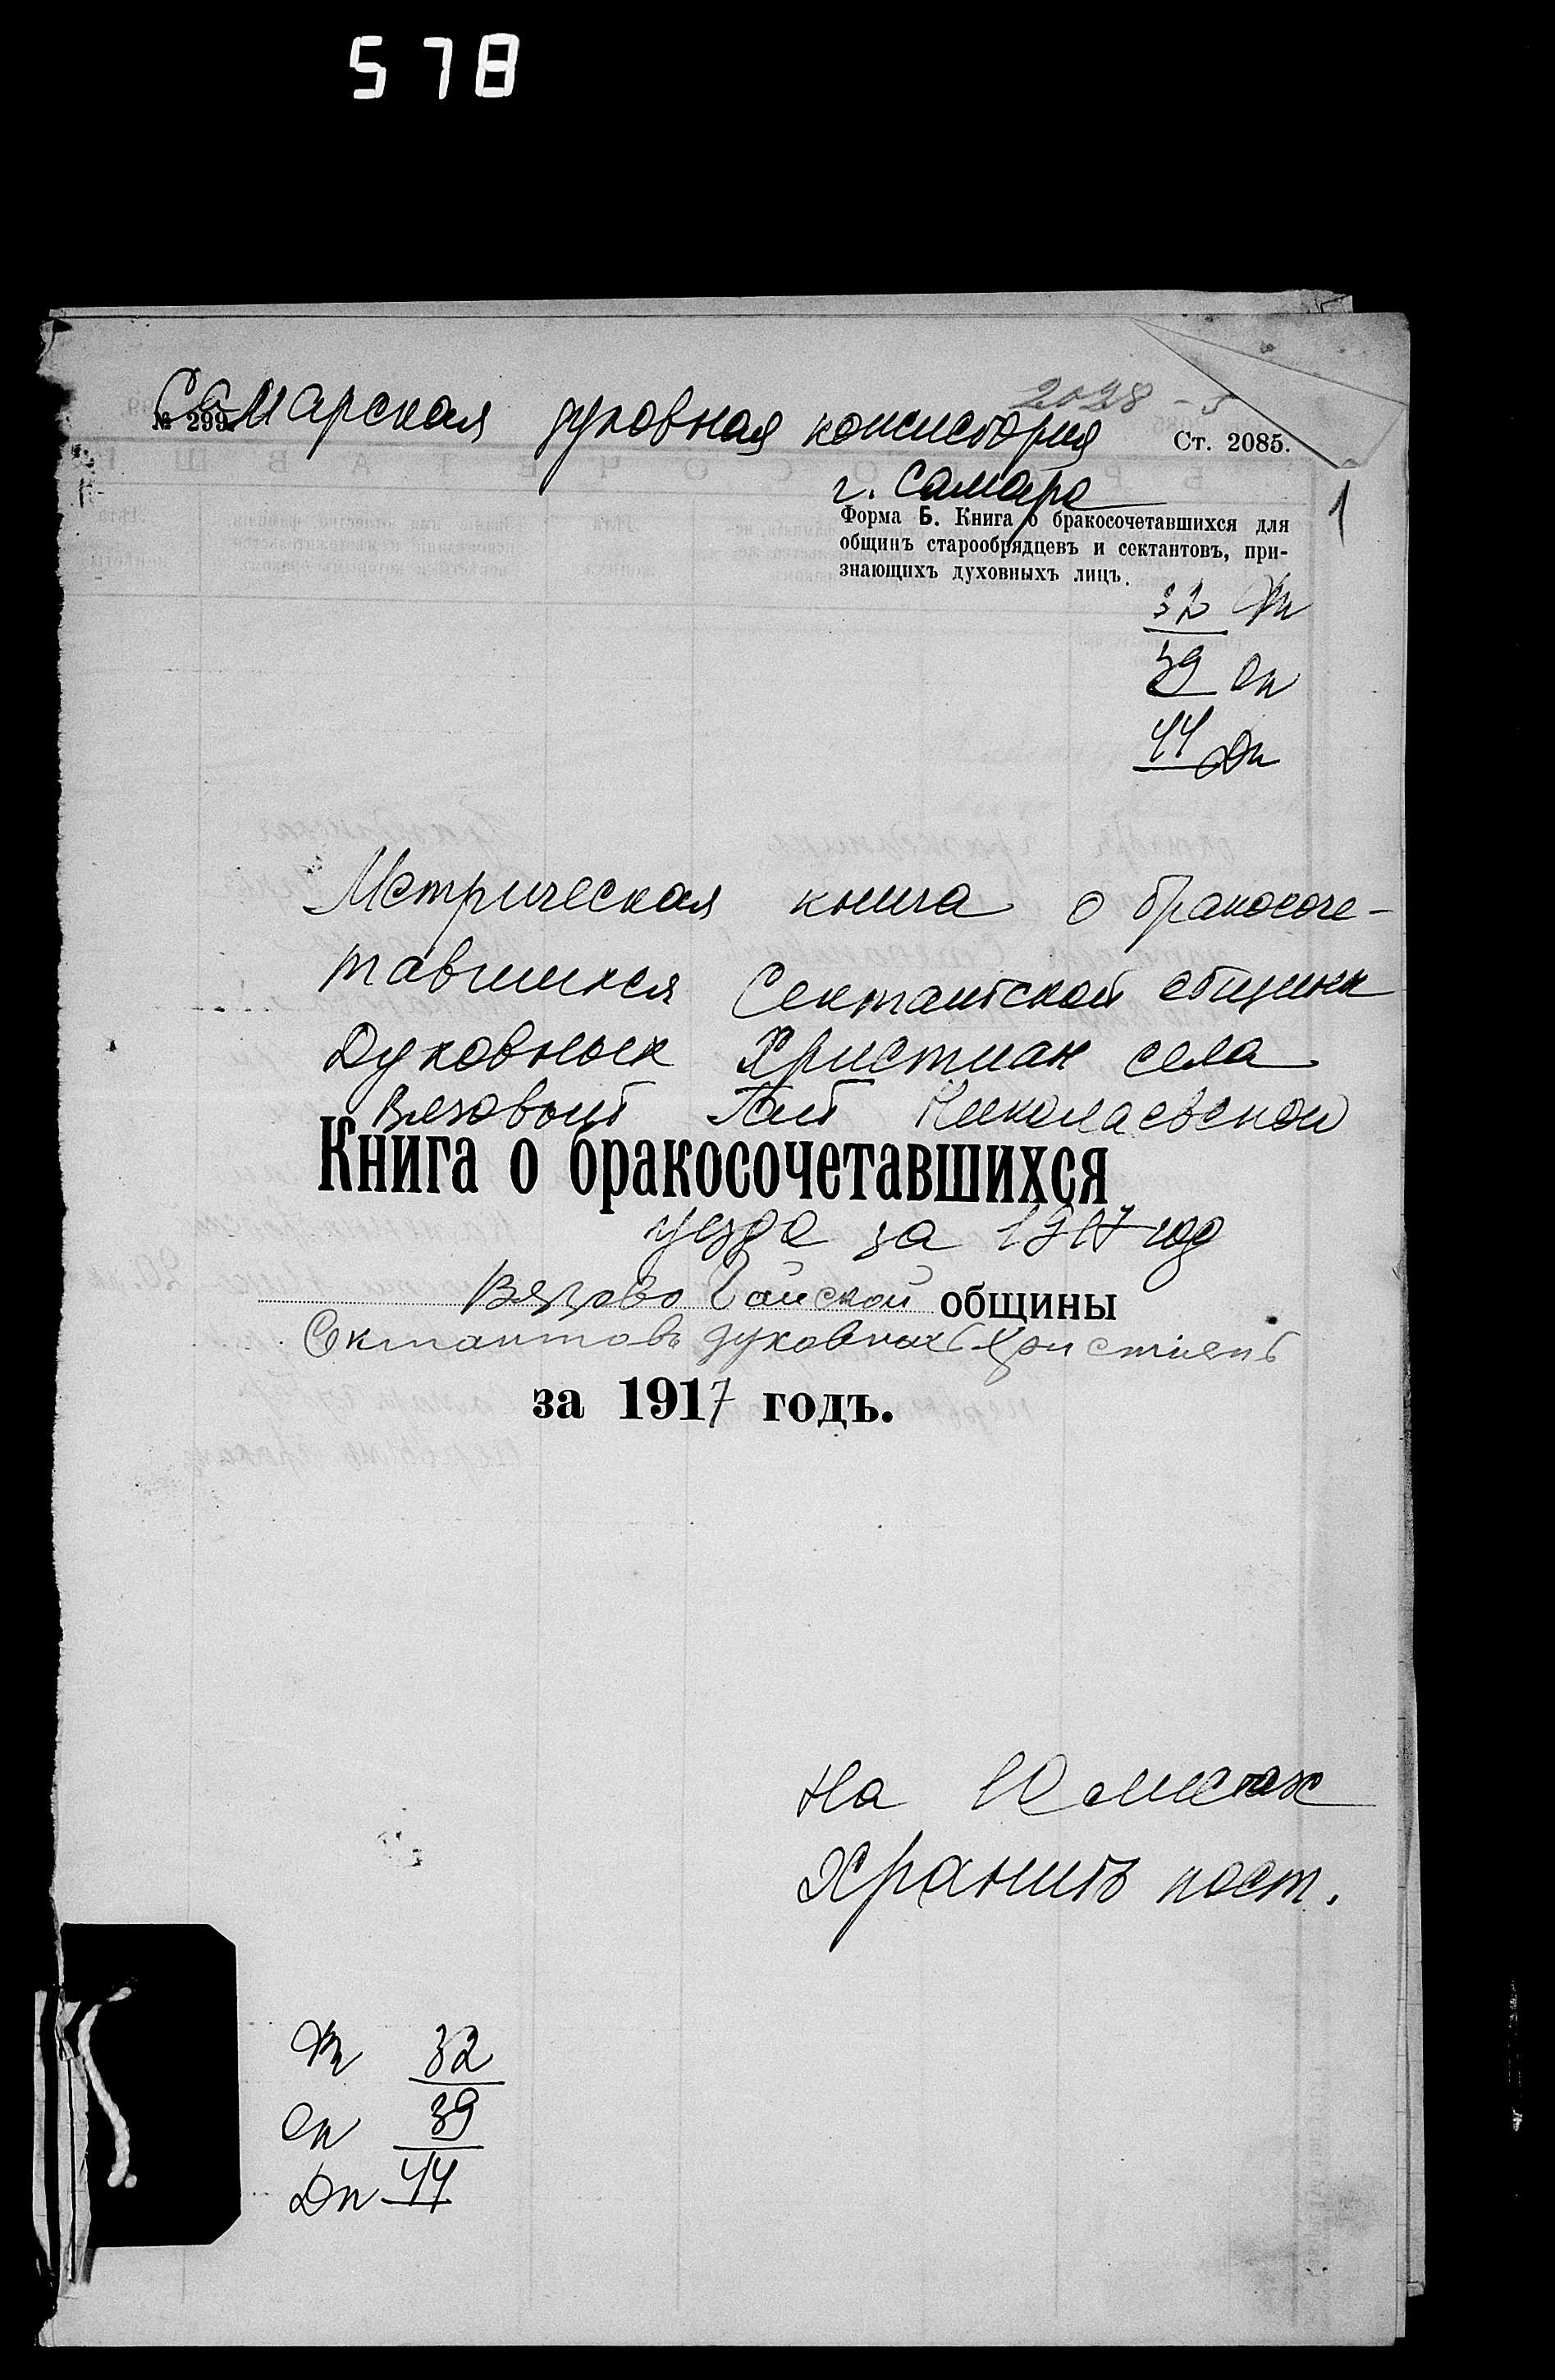 578
2028-5
Самарская духовная консистория
№ 299. Ст. 2085.
г. Самара
1
Форма Б. Книга о бракосочетавшихся для
общинъ старообрядцевъ и сектантовъ, при-
знающихъ духовныхъ лицъ.
32 Фн
39 Оп
44 Дп
Метрическая книга о бракосоче-
тавшихся Сектантской общины
Духовных Христиан села
Вязовый Гай Николаевской
Книга о бракосочетавшихся
уезда за 1917 год
Вязово Гайской общины
Сектантовъ духовныхъ христіянъ
за 1917 годъ.
На 10 листах
Хранить пост.
Фн 32
Оп 39
Дп 44